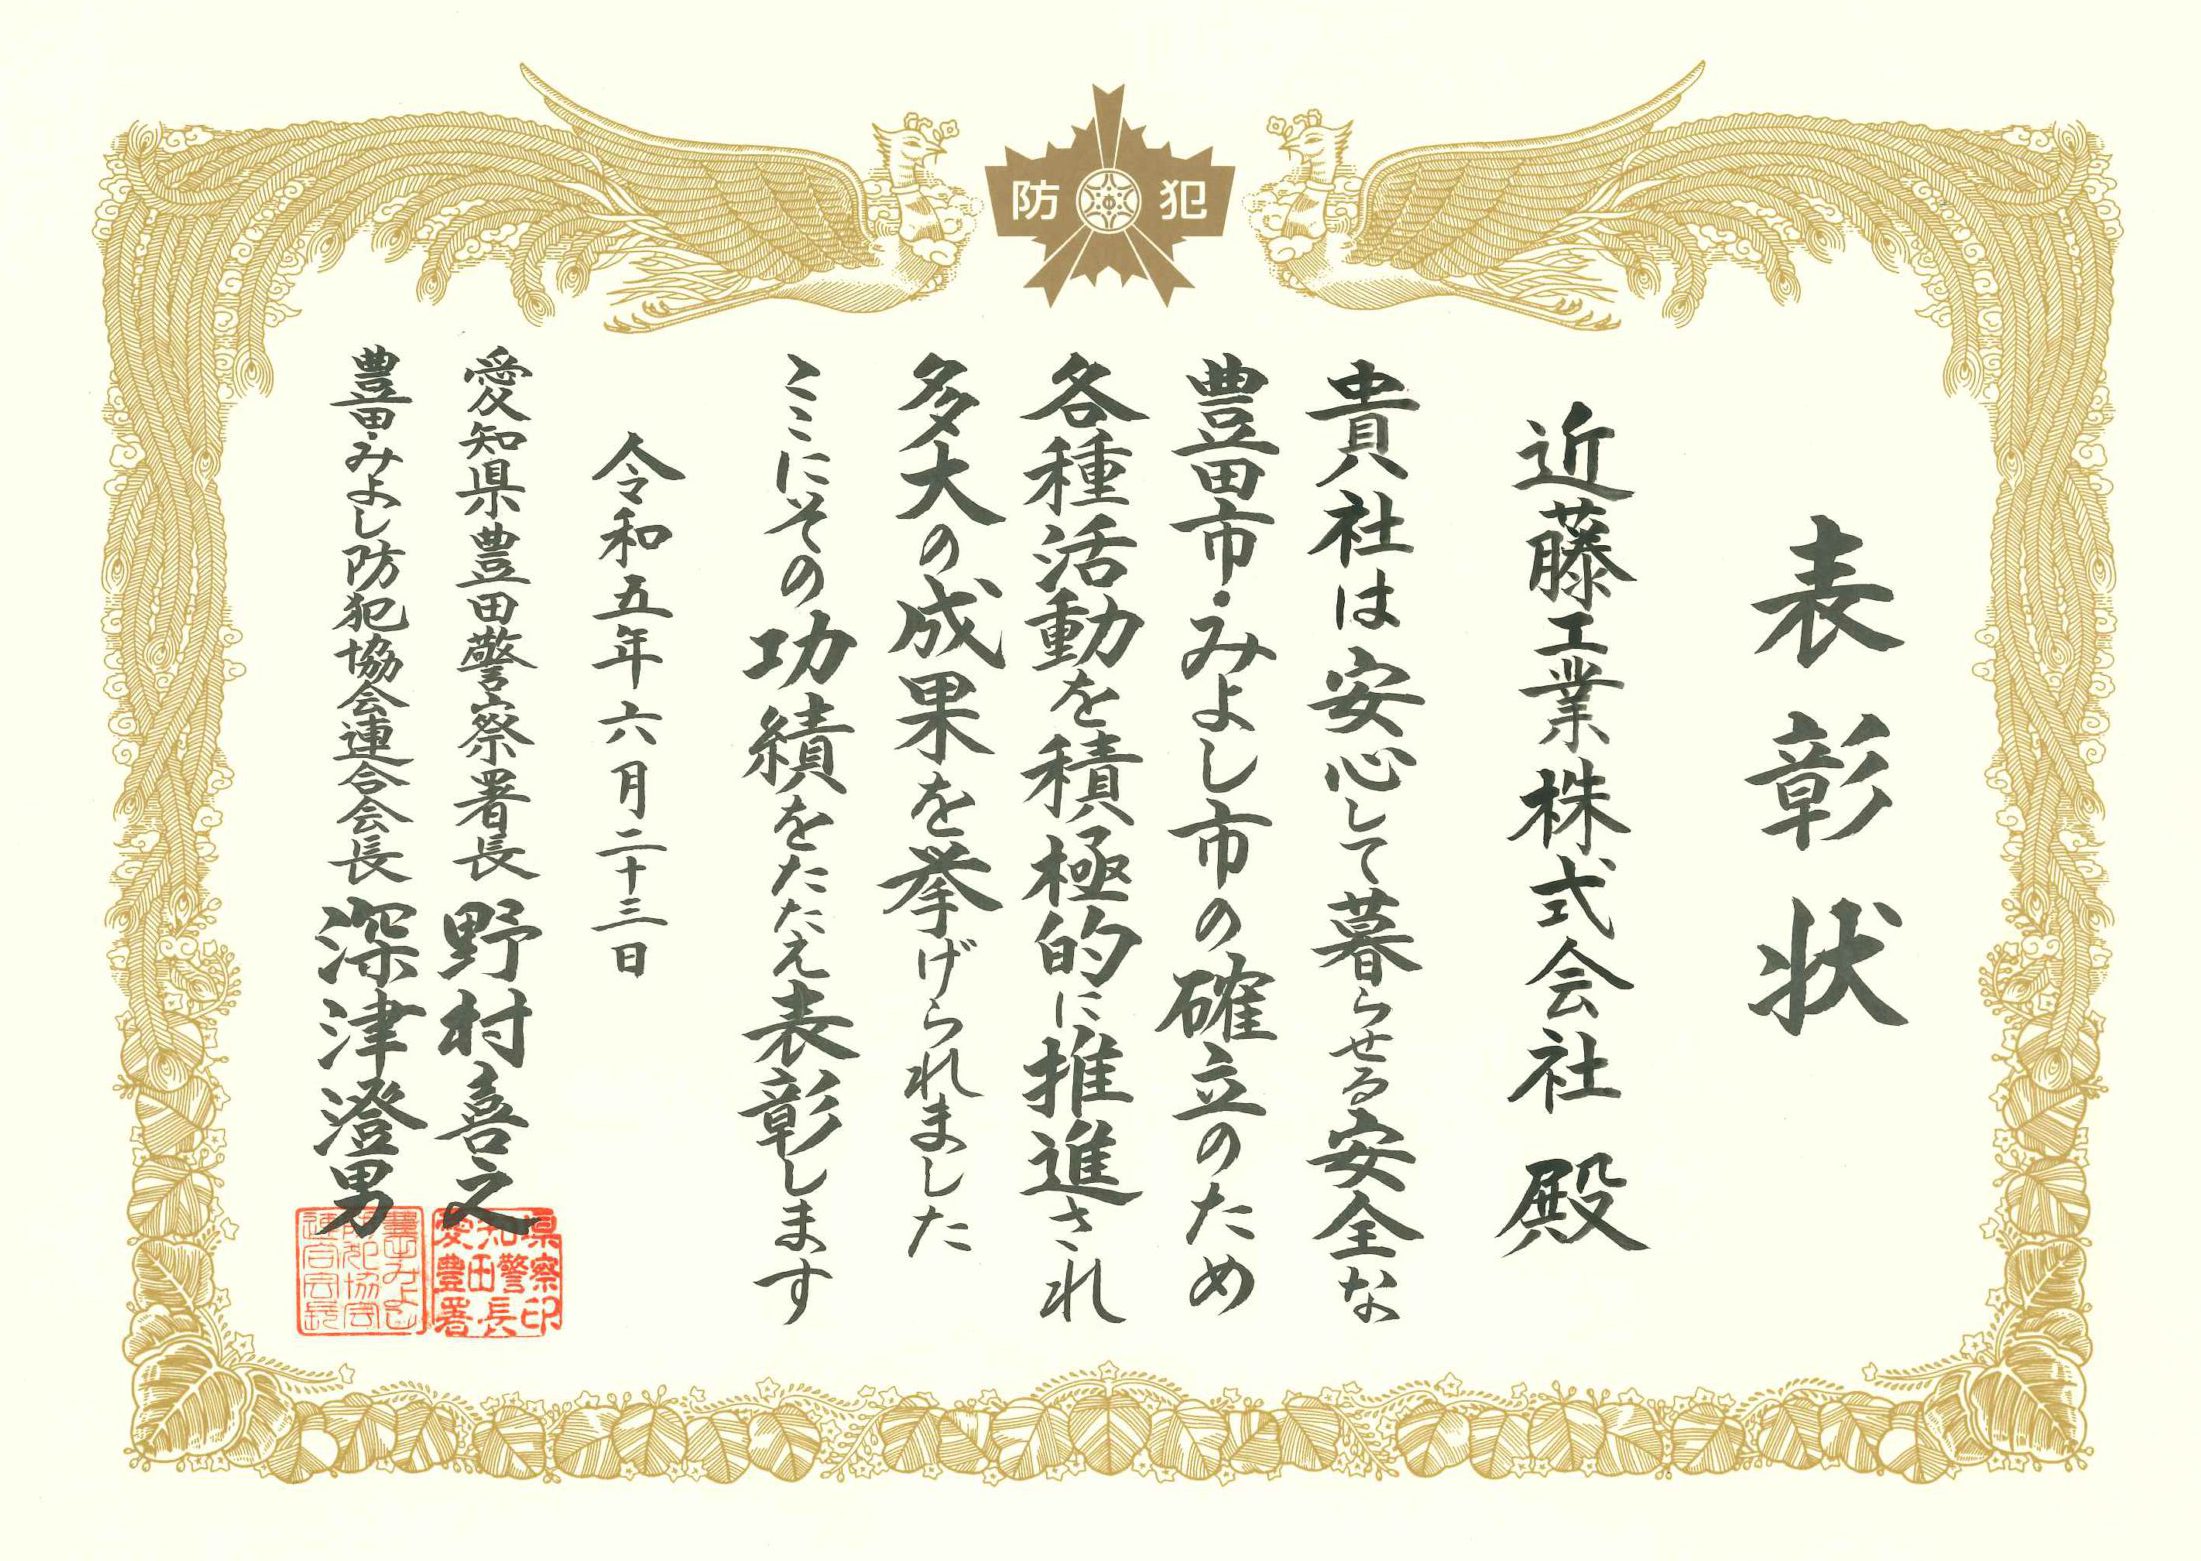 防犯
表彰状
近藤工業株式会社 殿
貴社は安心して暮らせる安全な
豊田市・みよし市の確立のため
各種活動を積極的に推進され
多大の成果を挙げられました
ここにその功績をたたえ表彰します
令和五年六月二十三日
愛知県豊田警察署長 野村喜之
豊田・みよし防犯協会連合会長 深津澄男
県察印
知警長
愛豊署